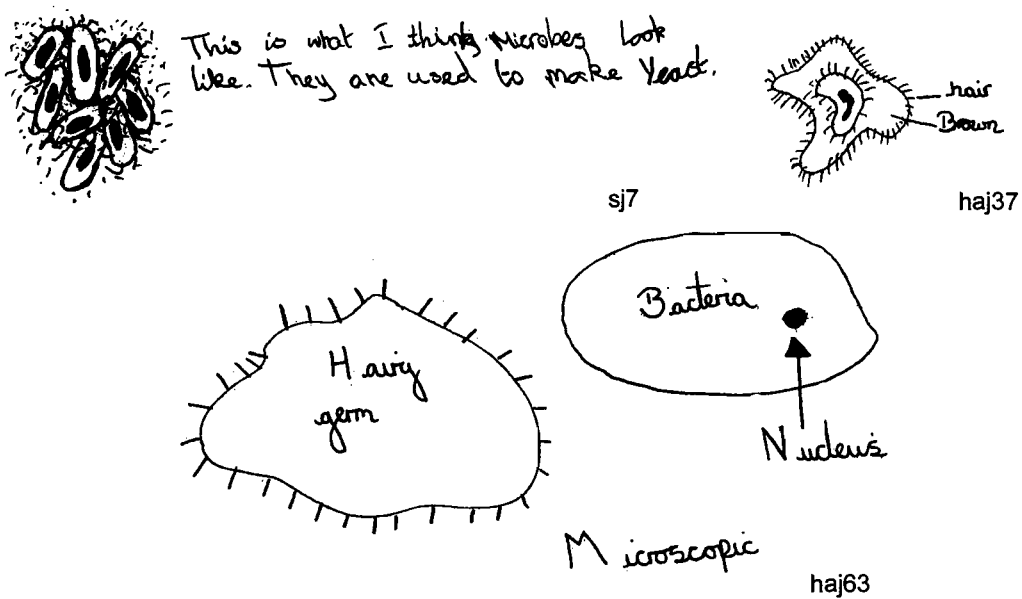 This is what I think Microbes look
like. They are used to make Yeast.
hair
Brown
sj7
haj37
Bacteria
Hairy
germ
Nucleus
Microscopic
haj63